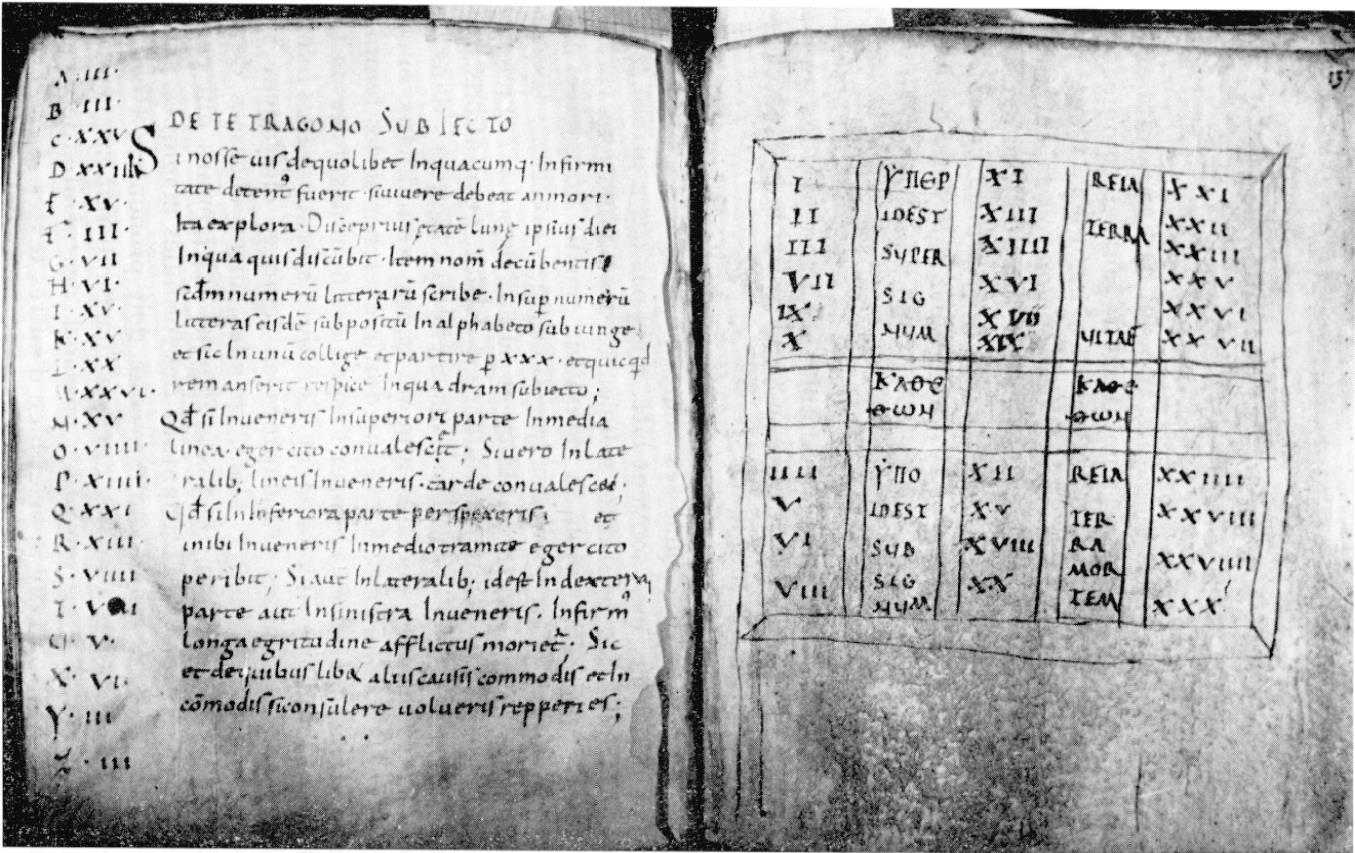 A · III ·
B · III ·
C · XXV
D XXIIII
E · XV ·
F · III ·
G · VII
H · VI ·
I · XV ·
K · XV
L · XX
M · XXVI ·
N · XV
O · VIIII ·
P · XIIII ·
Q · XXI
R · XIII ·
S · VIIII
T · VIII
U · V ·
X · VI ·
Y · III
Z · III
DE TETRAGONO SUBIECTO
Si nosse uis de quolibet Inquacumq · Infirmi
tate detent᾽ fuerit · si uiuere debeat an mori ·
Ita explora · Disce prius ętatē lunę ipsius diei
Inqua quis discūbit · Item nom̄ decūbentis
scdm numerū litterarū scribe · Insup numerū
litteras eisdē subpositū In alphabeto subiunge
et sic In unū collige et partire p xxx · et quicqd
remanserit respice Inquadram subiecto ;
Qd si Inueneris Insuperiori parte Inmedia
linea · eger cito conualescet ; Si uero Inlate
ralib; lineis Inueneris · tarde conualescet ·
Qd si In Inferiora parte perspexeris · et
inibi Inueneris Inmedio tramite eger cito
peribit ; Si aut Inlateralib; idest Indextera
parte aut Insinistra Inueneris · Infirm᾽
longa egritudine afflictus moriet · Sic
et de quibuslibet aliis causis commodis et In
cōmodis si consulere uolueris repperies ;
137
I ΥΠΕΡ XI REIA XXI
II IDEST XIII TERRA XXII
III SUPER XIIII XXIII
VII SIG XVI XXV
IX NUM XVII XXVI
X XIX UITAE XXVII
ΚΑΘΕ ΚΑΘΕ
ΘΩΝ ΘΩΝ
IIII ΥΠΟ XII REIA XXIIII
V IDEST XV TER XXVIII
VI SUB XVIII RA XXVIIII
VIII SIG XX MOR XXX
NUM TEM